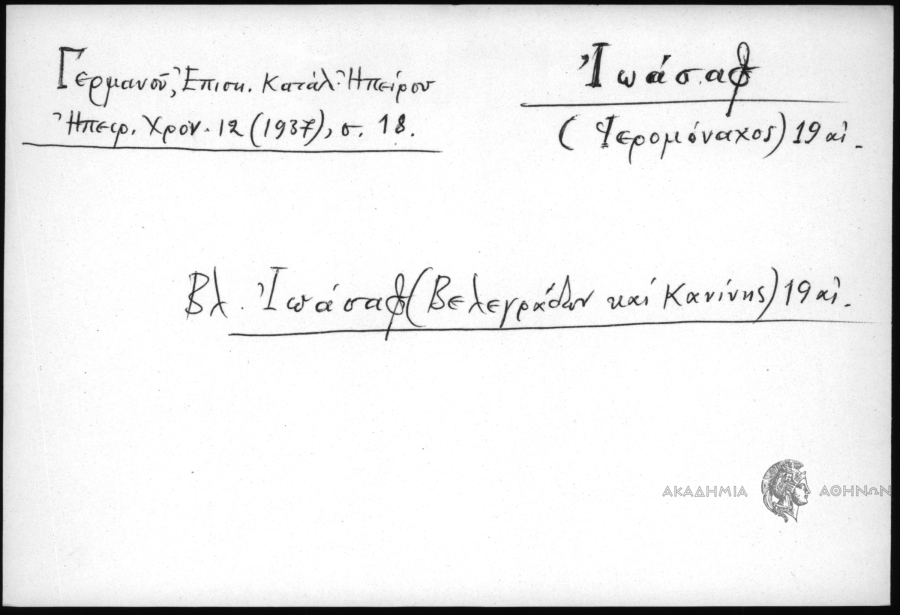 Γερμανοῦ, Ἐπισκ. Κατάλ. Ἠπείρου
Ἠπειρ. Χρον. 12 (1937), σ. 18.
Ἰωάσαφ
(Ἱερομόναχος) 19 αἰ.
Βλ. Ἰωάσαφ (Βελεγράδων καὶ Κανίνης) 19 αἰ.
ΑΚΑΔΗΜΙΑ ΑΘΗΝΩΝ